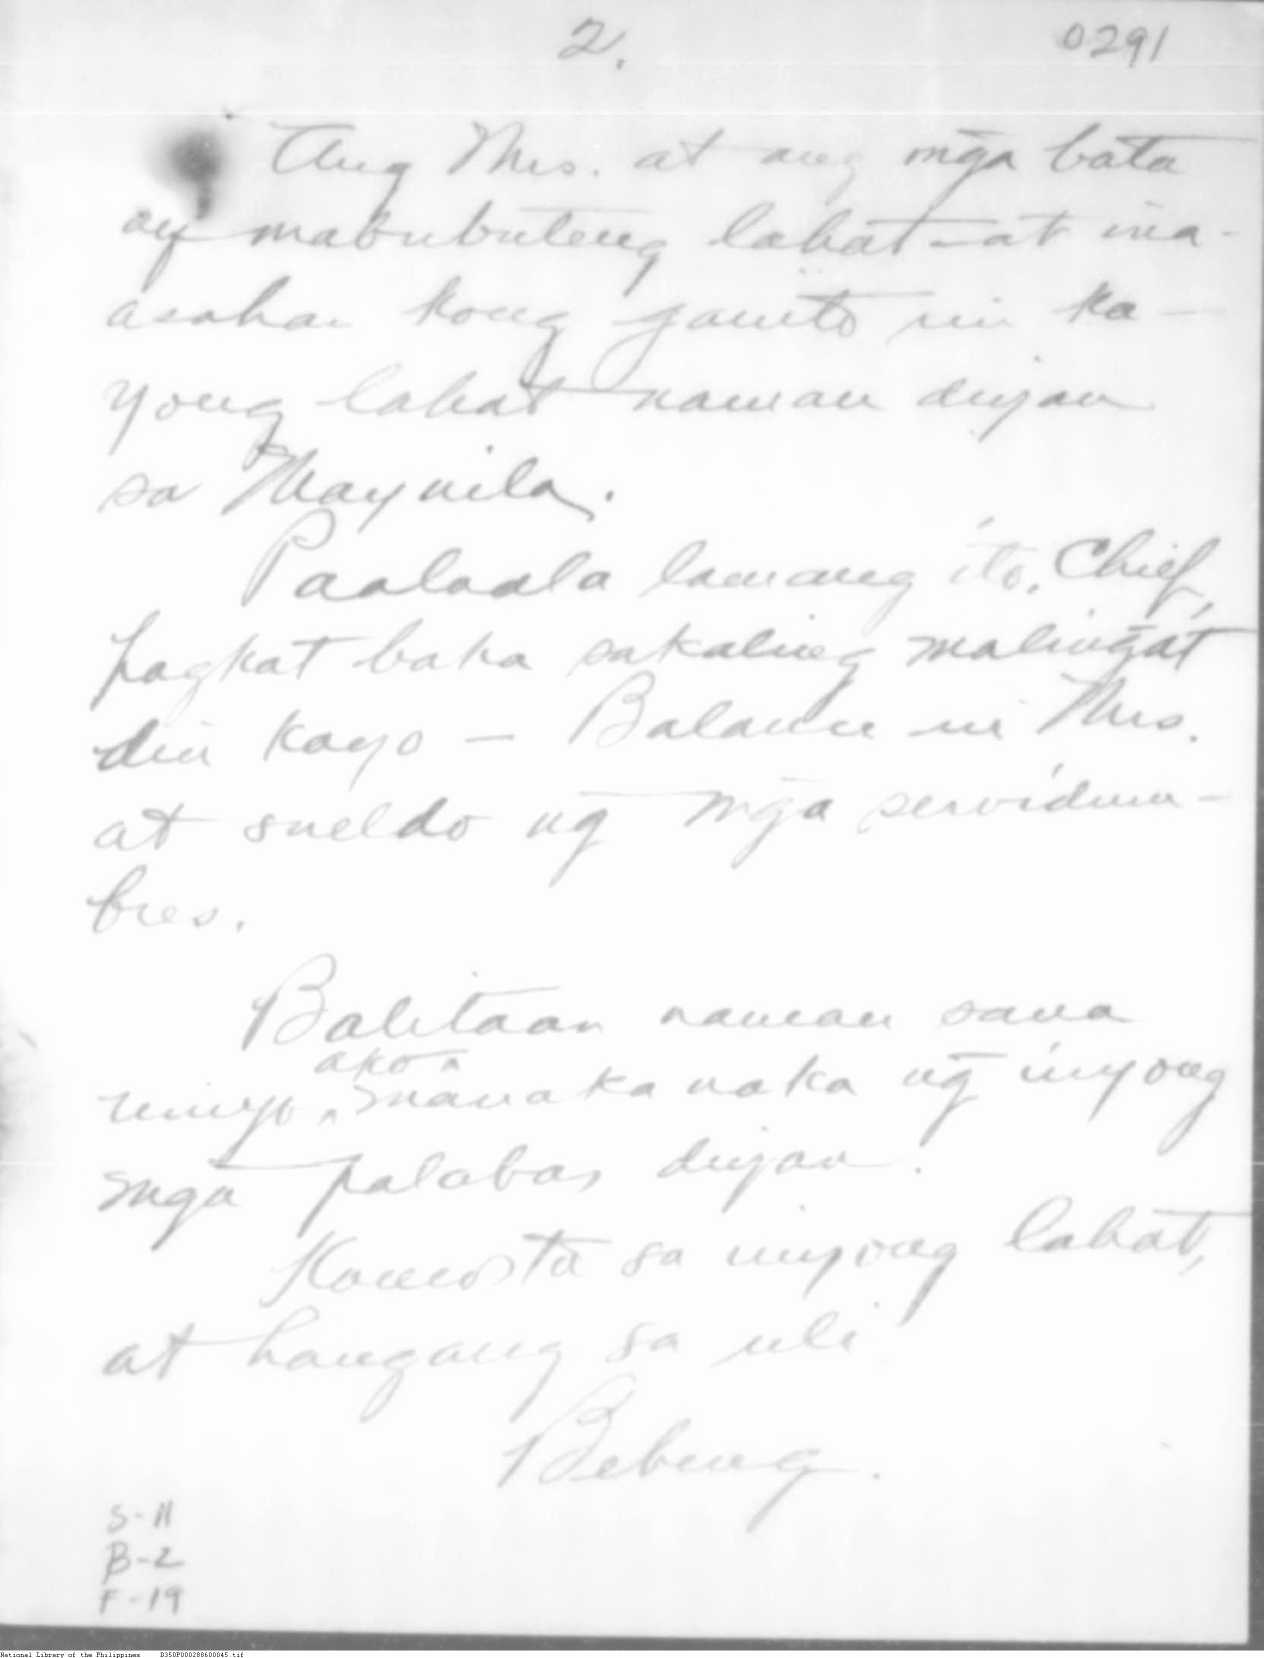 2.
0291
Ang Mrs. at ang mg̃a bata
ay mabubuteng lahat — at ina-
asahan kong ganito rin ka-
yong lahat naman diyan
sa Maynila.
Paalaala lamang ito, Chief,
pagkat baka sakaling maling̃at
din kayo — Balance ni Mrs.
at sueldo ng̃ mg̃a servidum-
bres.
Balitaan naman sana
ako
ninyo ^ manaka naka ng̃ inyong
mg̃a palabas diyan.
Komosta sa inyong lahat,
at hangang sa uli
Bebeng.
S-11
B-2
F-19
National Library of the Philippines D350P000288600045.tif